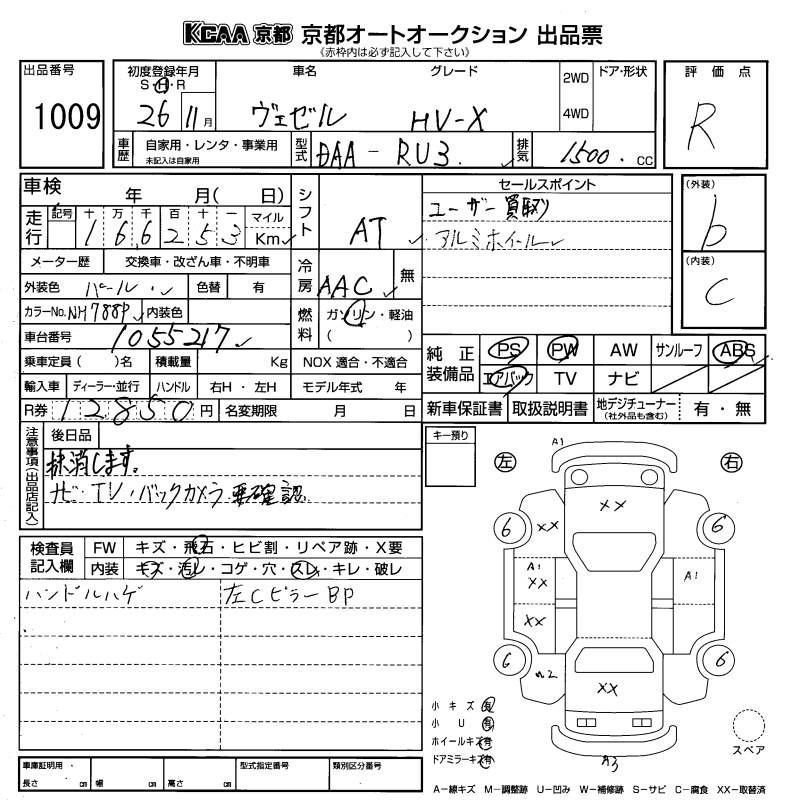 KCAA 京都 京都オートオークション 出品票
《赤枠内は必ず記入して下さい》
出品番号
1009
初度登録年月
S・H・R
26 11月
車名 グレード
ヴェゼル HV-X
2WD
4WD
ドア・形状
評価点
R
車歴 自家用・レンタ・事業用
未記入は自家用
型式 DAA-RU3
排気 1500 cc
車検 年 月( 日)
走行 記号 十 万 千 百 十 一 マイル
1 6 6 2 5 3 Km
メーター歴 交換車・改ざん車・不明車
外装色 パール 色替 有
カラーNo. NH788P 内装色
車台番号 1055217
乗車定員( )名 積載量 Kg
輸入車 ディーラー・並行 ハンドル 右H・左H
R券 12850円 名変期限 月 日
シフト AT
冷房 AAC 無
燃料 ガソリン・軽油
( )
NOX 適合・不適合
モデル年式 年
セールスポイント
ユーザー買取り
アルミホイール
(外装)
b
(内装)
C
純正装備品 PS PW AW サンルーフ ABS
エアバック TV ナビ
新車保証書 取扱説明書 地デジチューナー
(社外品も含む) 有・無
注意事項(出品店記入)
後日品
抹消します。
ナビ・TV・バックカメラ要確認
検査員記入欄
FW キズ・飛石・ヒビ割・リペア跡・X要
内装 キズ・汚レ・コゲ・穴・スレ・キレ・破レ
ハンドルハゲ 左Cピラー BP
キー預り
左 右
A1
XX
6 XX 6
A1
XX A1
XX
6 6
XX
A3
小キズ 有
小U 有
ホイールキズ 有
ドアミラーキズ 有
スペア
車庫証明用
長さ cm 幅 cm 高さ cm
型式指定番号 類別区分番号
A-線キズ M-調整跡 U-凹み W-補修跡 S-サビ C-腐食 XX-取替済